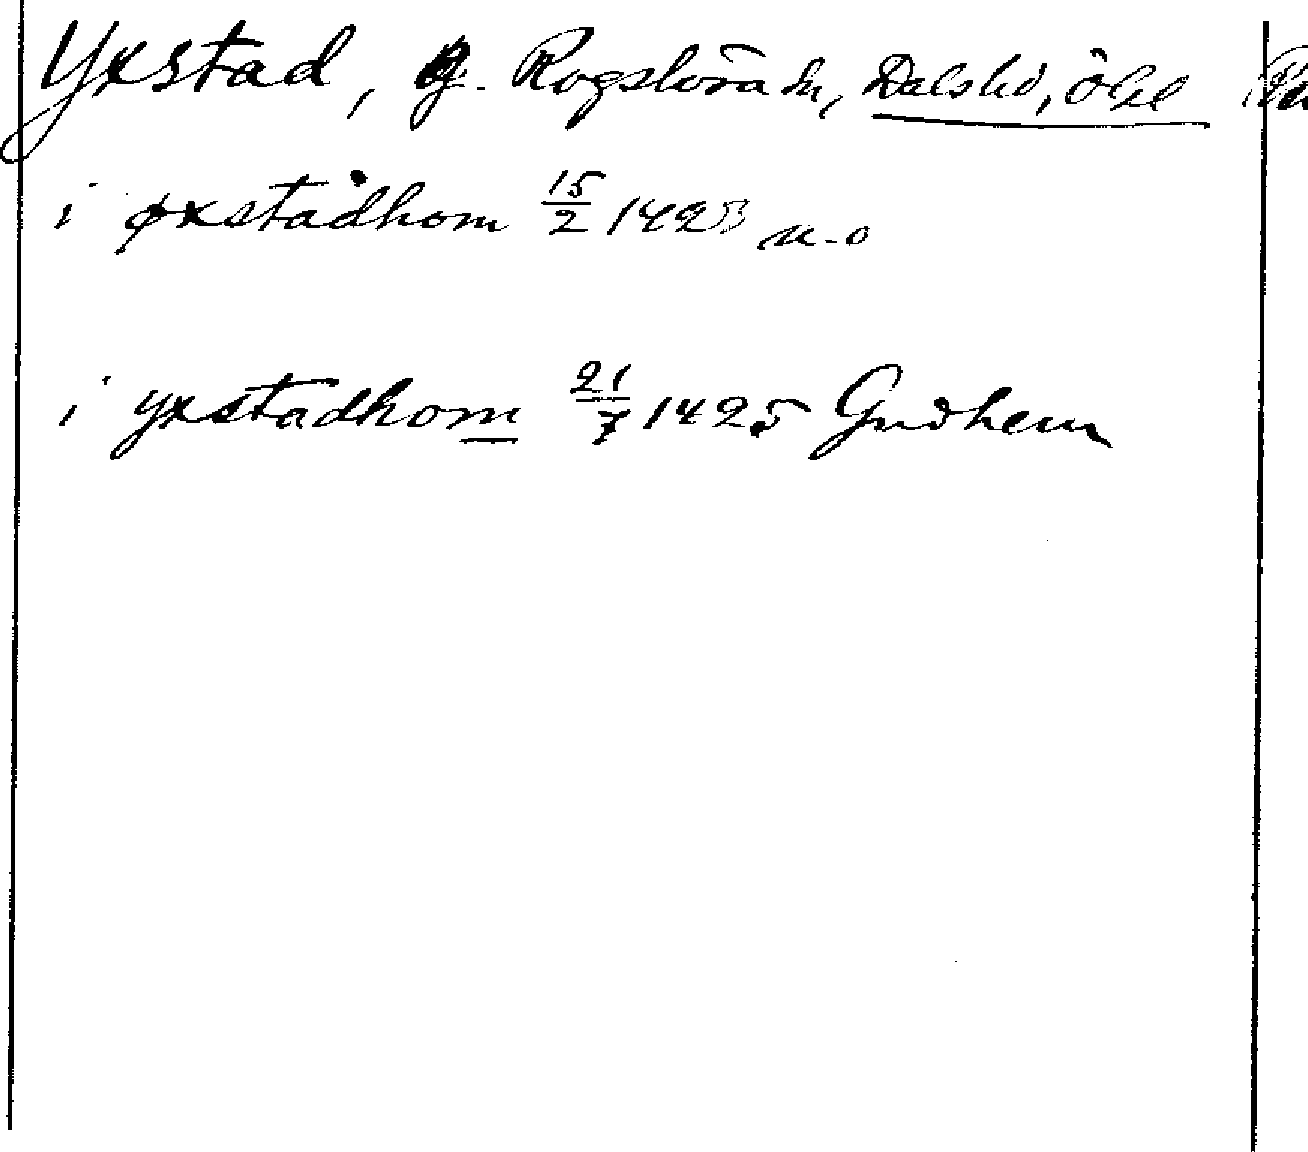 Yxstad, g. Rogslösa sn, Dalshd, Ögl
i øxstadhom 15/2 1423 u.o
i yxstadhom 21/7 1425 Gudhem